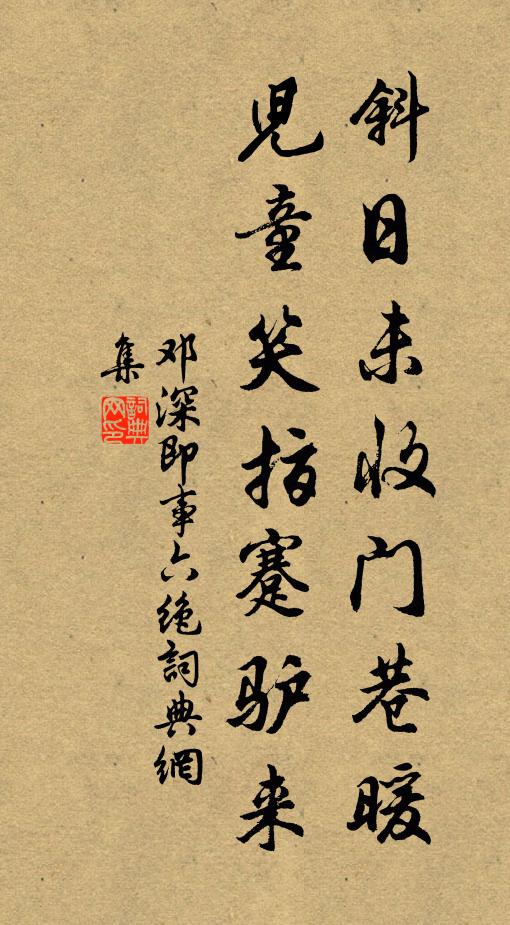 斜日未收门巷暖
児童笑指蹇驴来
邓深即事六绝詞典網
集
詞典
网印